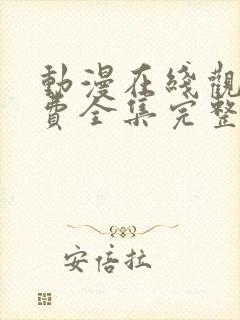 動漫在綫觀
費全集完整
安倍拉